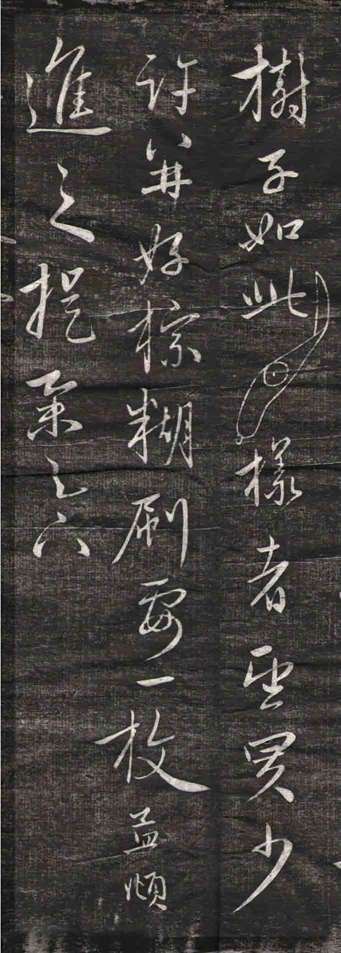 樹子如此樣者望買少
許并好棕糊刷要一枚孟頫
進之提舉